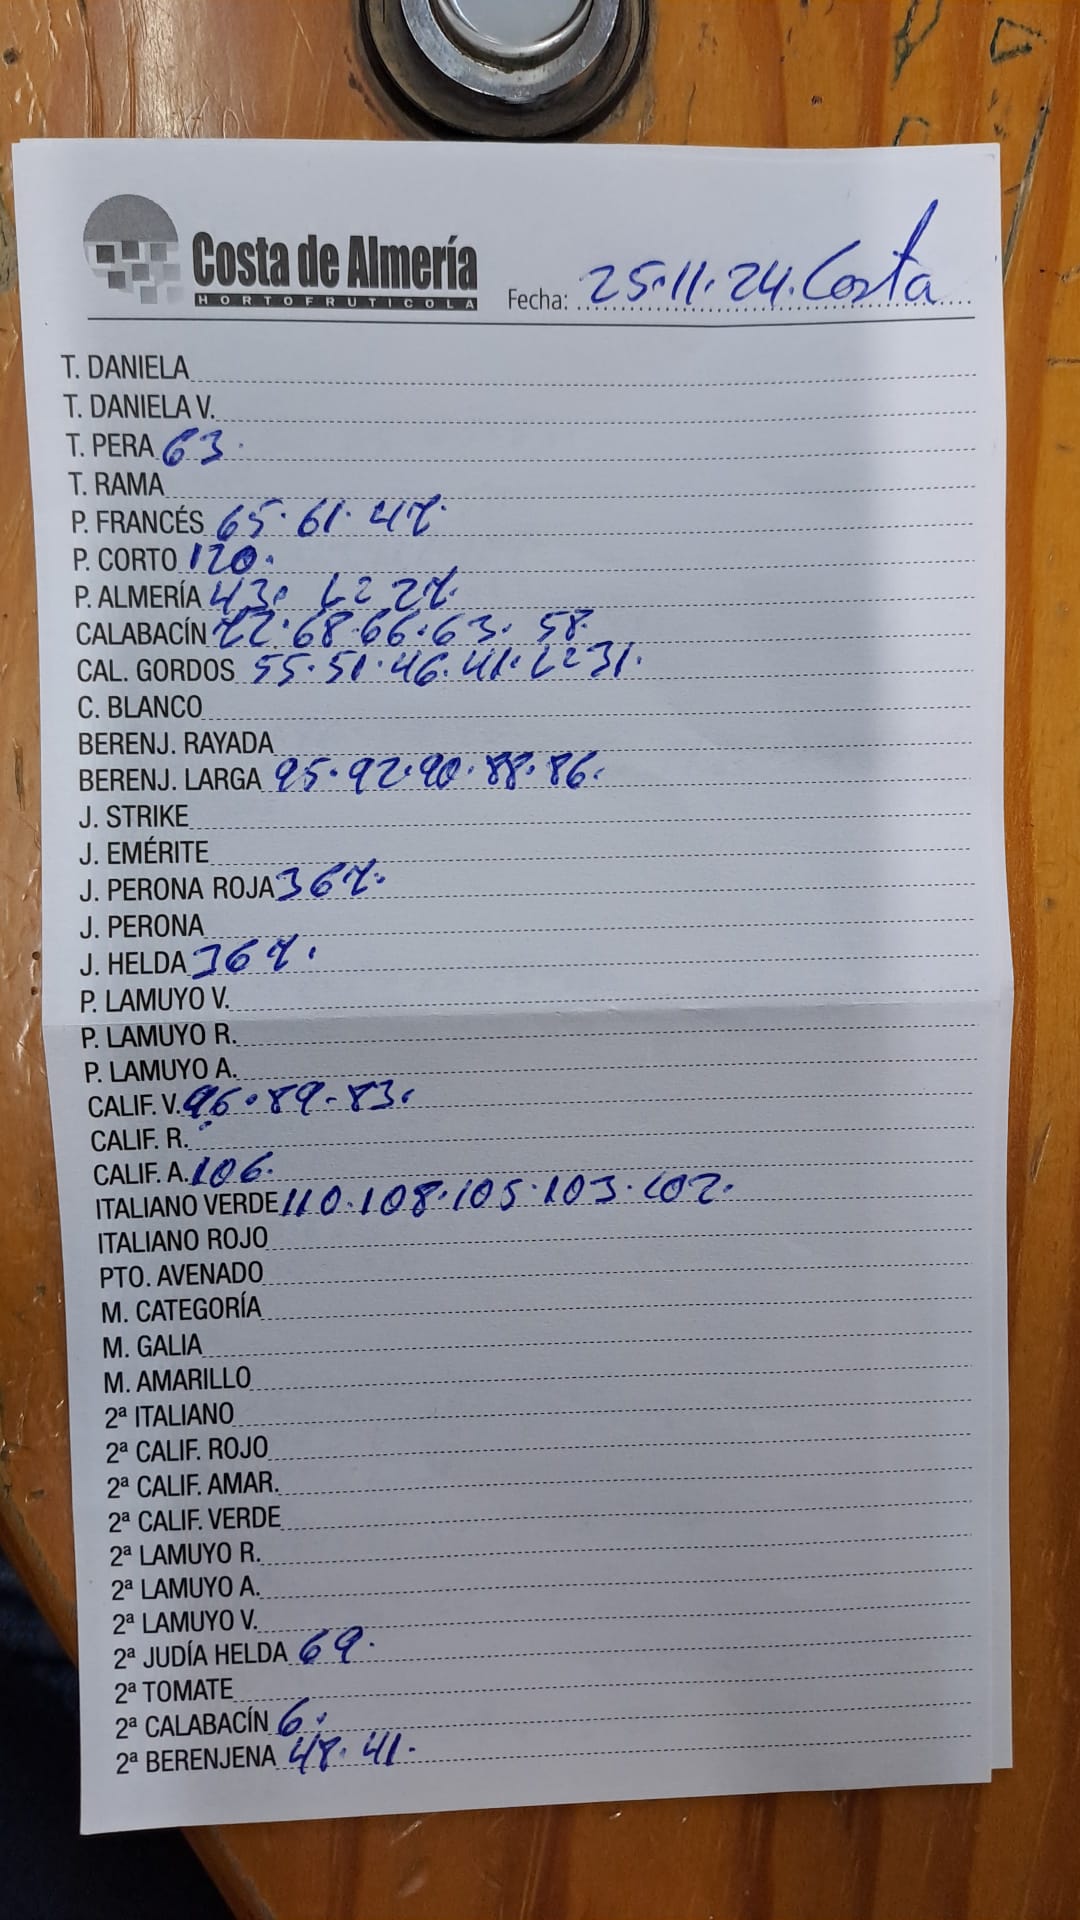 Costa de Almería
HORTOFRUTICOLA
Fecha: 25.11.24. Costa
T. DANIELA
T. DANIELA V.
T. PERA 63.
T. RAMA
P. FRANCÉS 65. 61. 47.
P. CORTO 120.
P. ALMERÍA 43. Lº 27.
CALABACÍN 72. 68. 66. 63. 58.
CAL. GORDOS 55. 51. 46. 41. Lº 31.
C. BLANCO
BERENJ. RAYADA
BERENJ. LARGA 95. 92. 90. 88. 86.
J. STRIKE
J. EMÉRITE
J. PERONA ROJA 367.
J. PERONA
J. HELDA 367.
P. LAMUYO V.
P. LAMUYO R.
P. LAMUYO A.
CALIF. V. 96. 89. 83.
CALIF. R.
CALIF. A. 106.
ITALIANO VERDE 110. 108. 105. 103. 102.
ITALIANO ROJO
PTO. AVENADO
M. CATEGORÍA
M. GALIA
M. AMARILLO
2ª ITALIANO
2ª CALIF. ROJO
2ª CALIF. AMAR.
2ª CALIF. VERDE
2ª LAMUYO R.
2ª LAMUYO A.
2ª LAMUYO V.
2ª JUDÍA HELDA 69.
2ª TOMATE
2ª CALABACÍN 6.
2ª BERENJENA 48. 41.